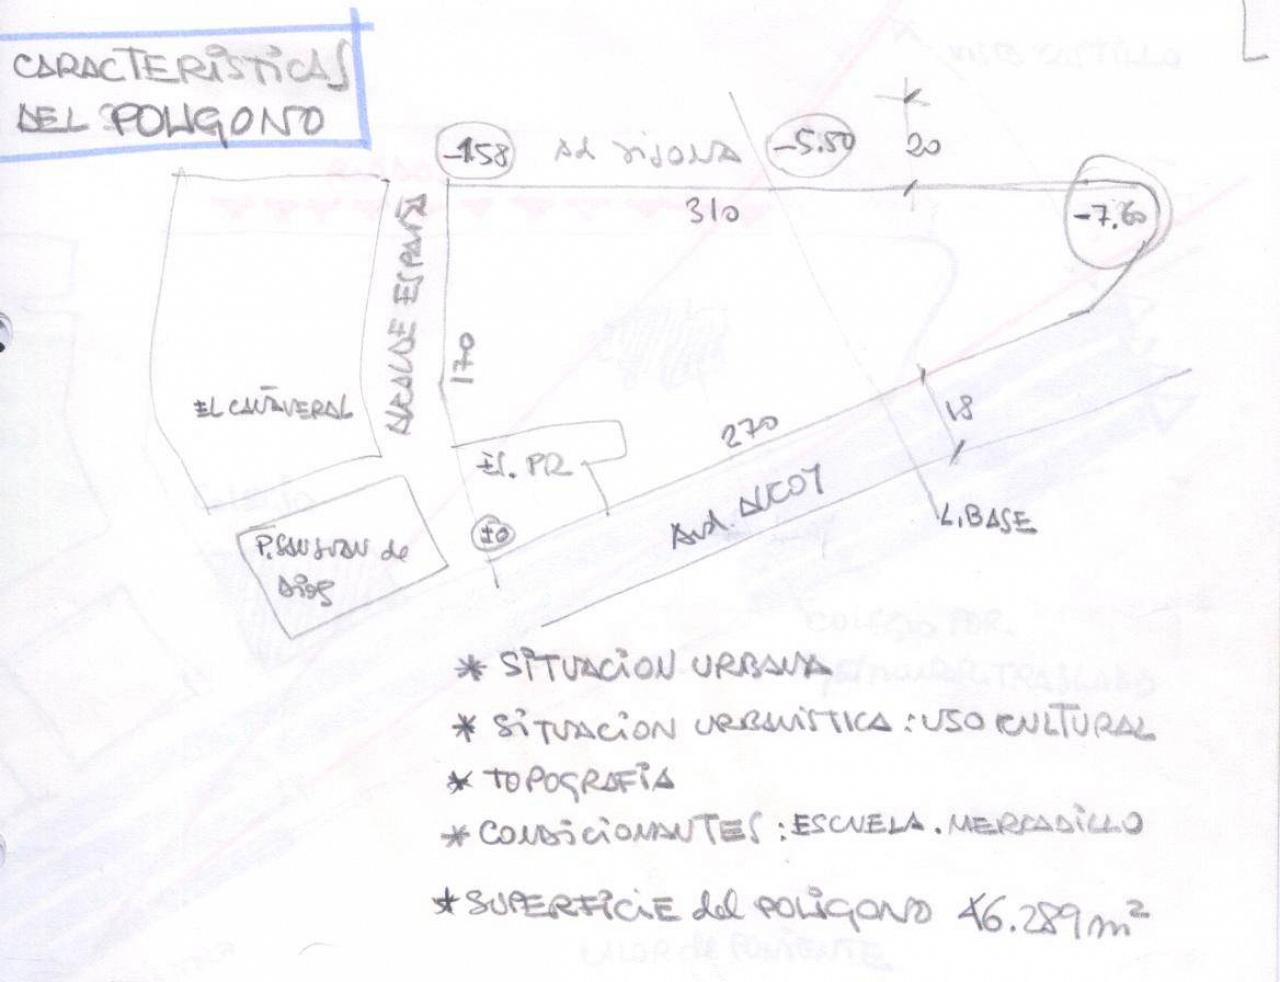 CARACTERISTICAS
DEL POLIGONO
-1.58
Ad JIJONA
-5.50
20
310
-7.60
ALCALDE ESPAÑA
170
EL CAÑAVERAL
270
18
ES. PR
Avd. ALCOY
±0
L. BASE
P. SAN JUAN de
DiOS
* SITUACION URBANA
* SITUACION URBANISTICA : USO CULTURAL
* TOPOGRAFIA
* CONDICIONANTES : ESCUELA . MERCADILLO
* SUPERFICIE del POLIGONO 46.289 m²